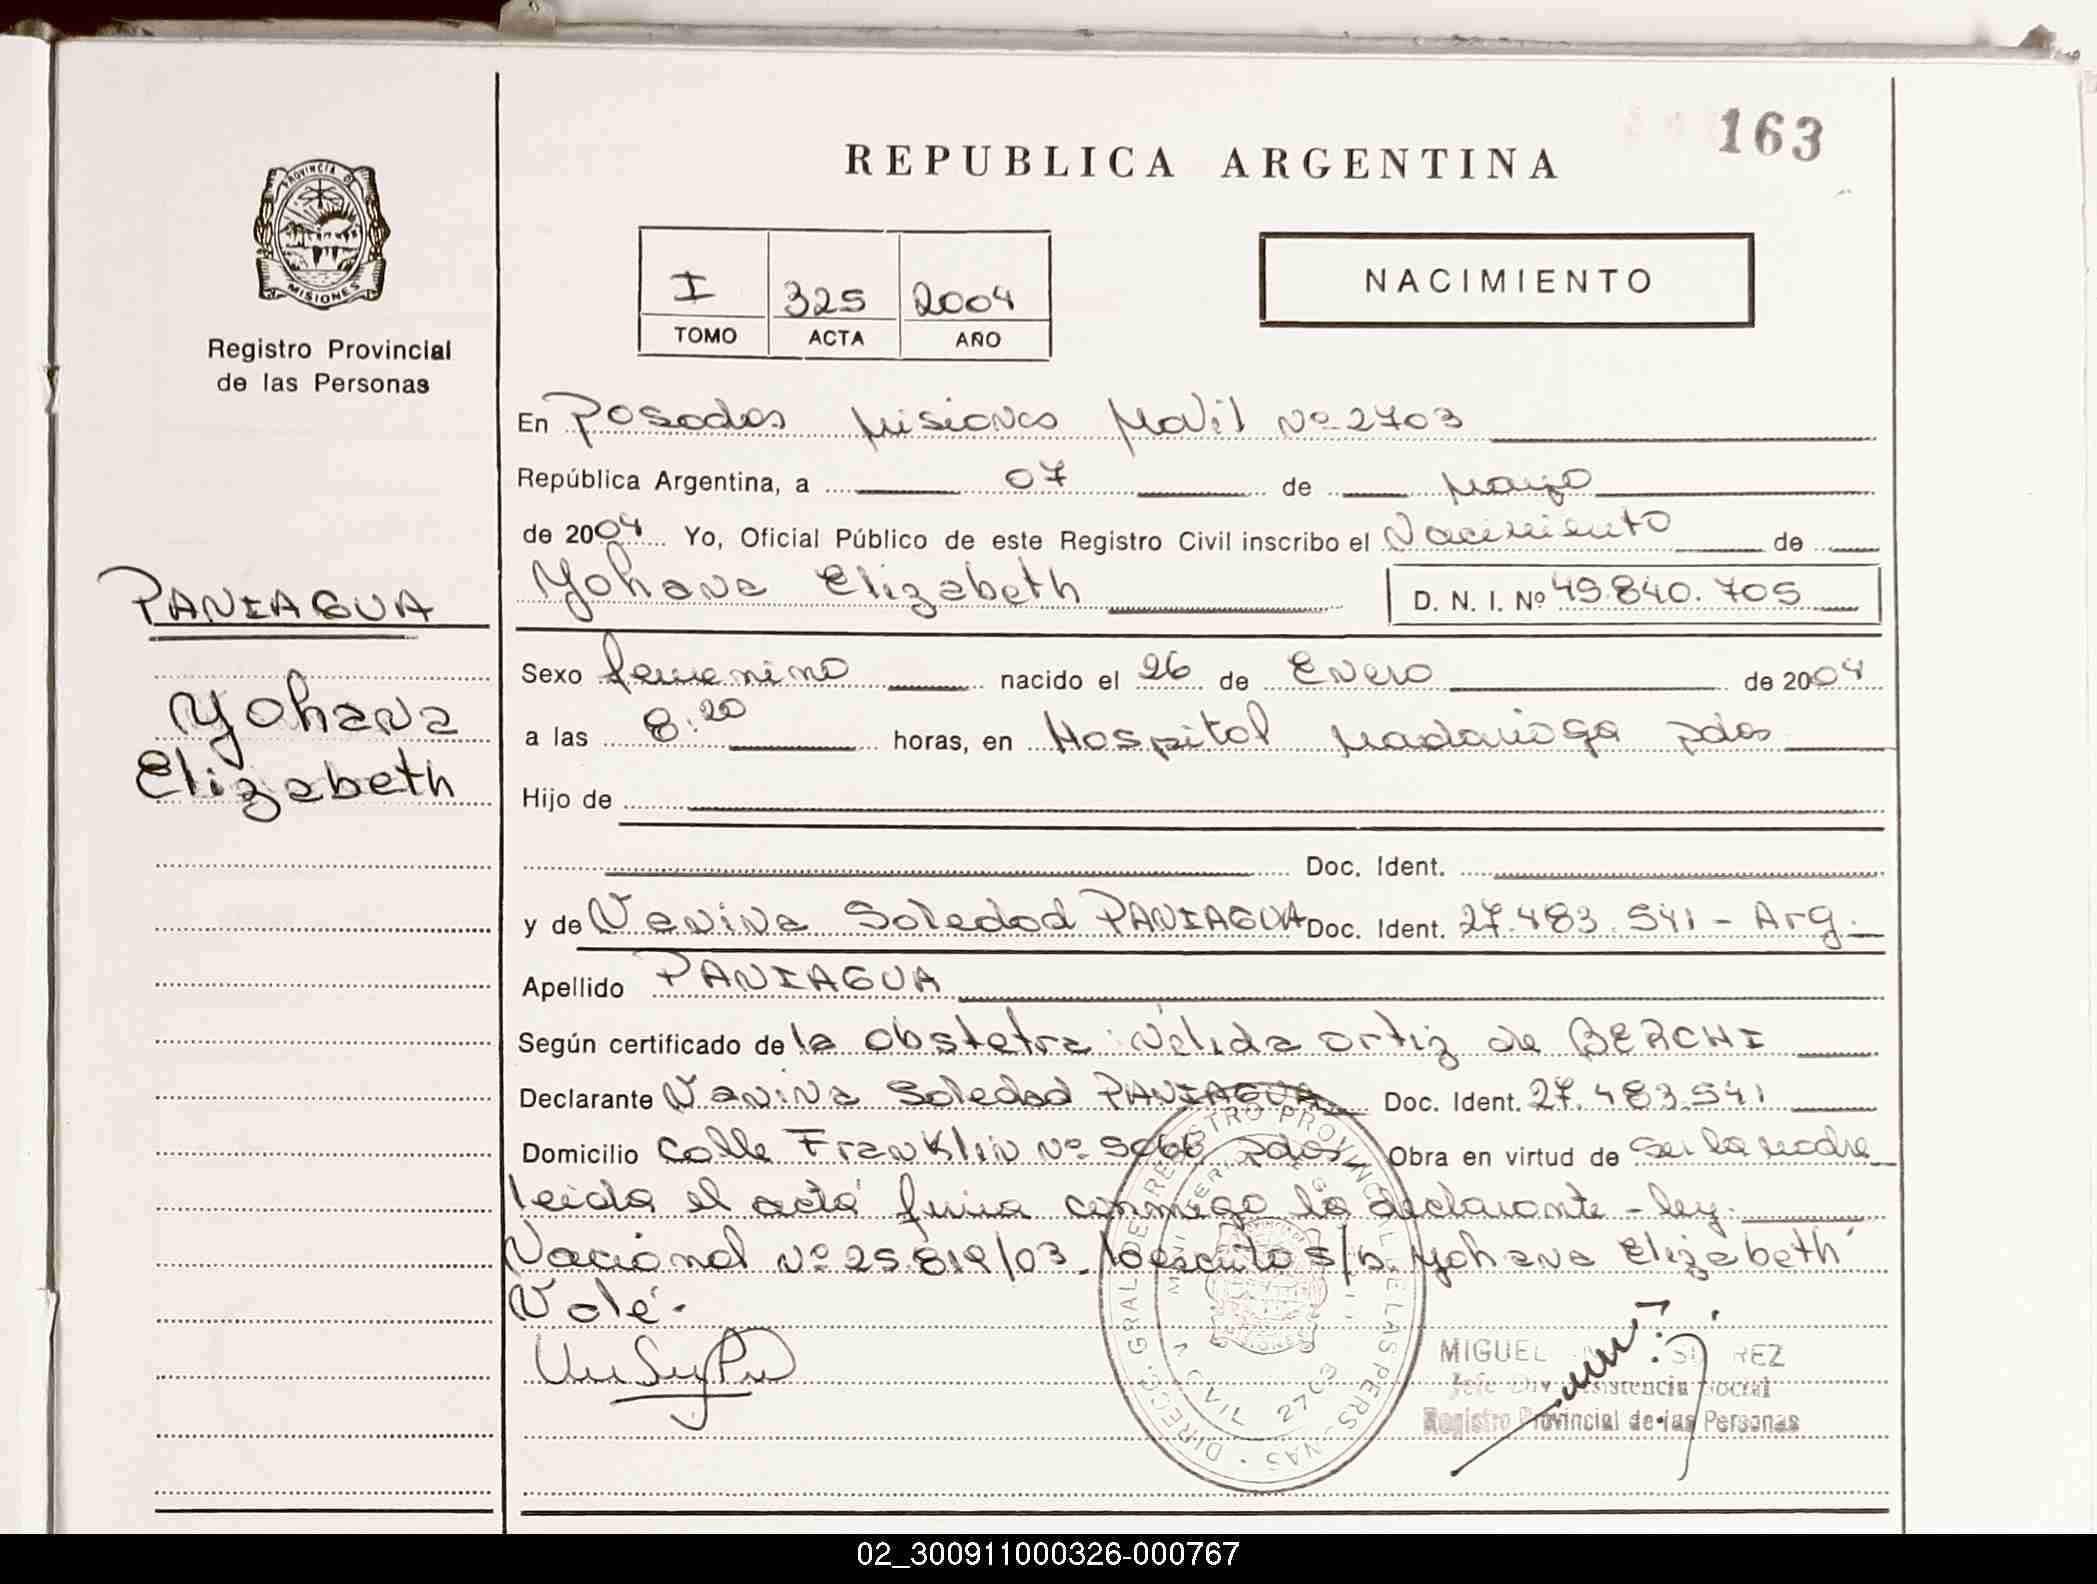 163
REPUBLICA ARGENTINA
PROVINCIA DE
MISIONES
Registro Provincial
de las Personas
I 325 2004
TOMO ACTA AÑO
NACIMIENTO
En Posadas Misiones Movil Nº 2703
República Argentina, a 07 de Mayo
de 2004 Yo, Oficial Público de este Registro Civil inscribo el Nacimiento de
Yohana Elizabeth D. N. I. Nº 49.840.705
PANIAGUA
Yohana
Elizabeth
Sexo femenino nacido el 26 de Enero de 2004
a las 8:20 horas, en Hospital Madariaga pdas
Hijo de
Doc. Ident.
y de Vanina Soledad PANIAGUA Doc. Ident. 27.483.541 - Arg.
Apellido PANIAGUA
Según certificado de la obstetra Nélida Ortiz de BERCHI
Declarante Vanina Soledad PANIAGUA Doc. Ident. 27.483.541
Domicilio Calle Franklin Nº pdas Obra en virtud de ser la madre
leida el acta firma conmigo la declarante - ley
Nacional Nº 25.819/03 loescrito s/b. Yohana Elizabeth
Vale.
DIRECC. GRAL DE REGISTRO PROVINCIAL DE LAS PERSONAS
MOVIL 2703
MIGUEL
Jefe Div. Asistencia Social
Registro Provincial de las Personas
02_300911000326-000767